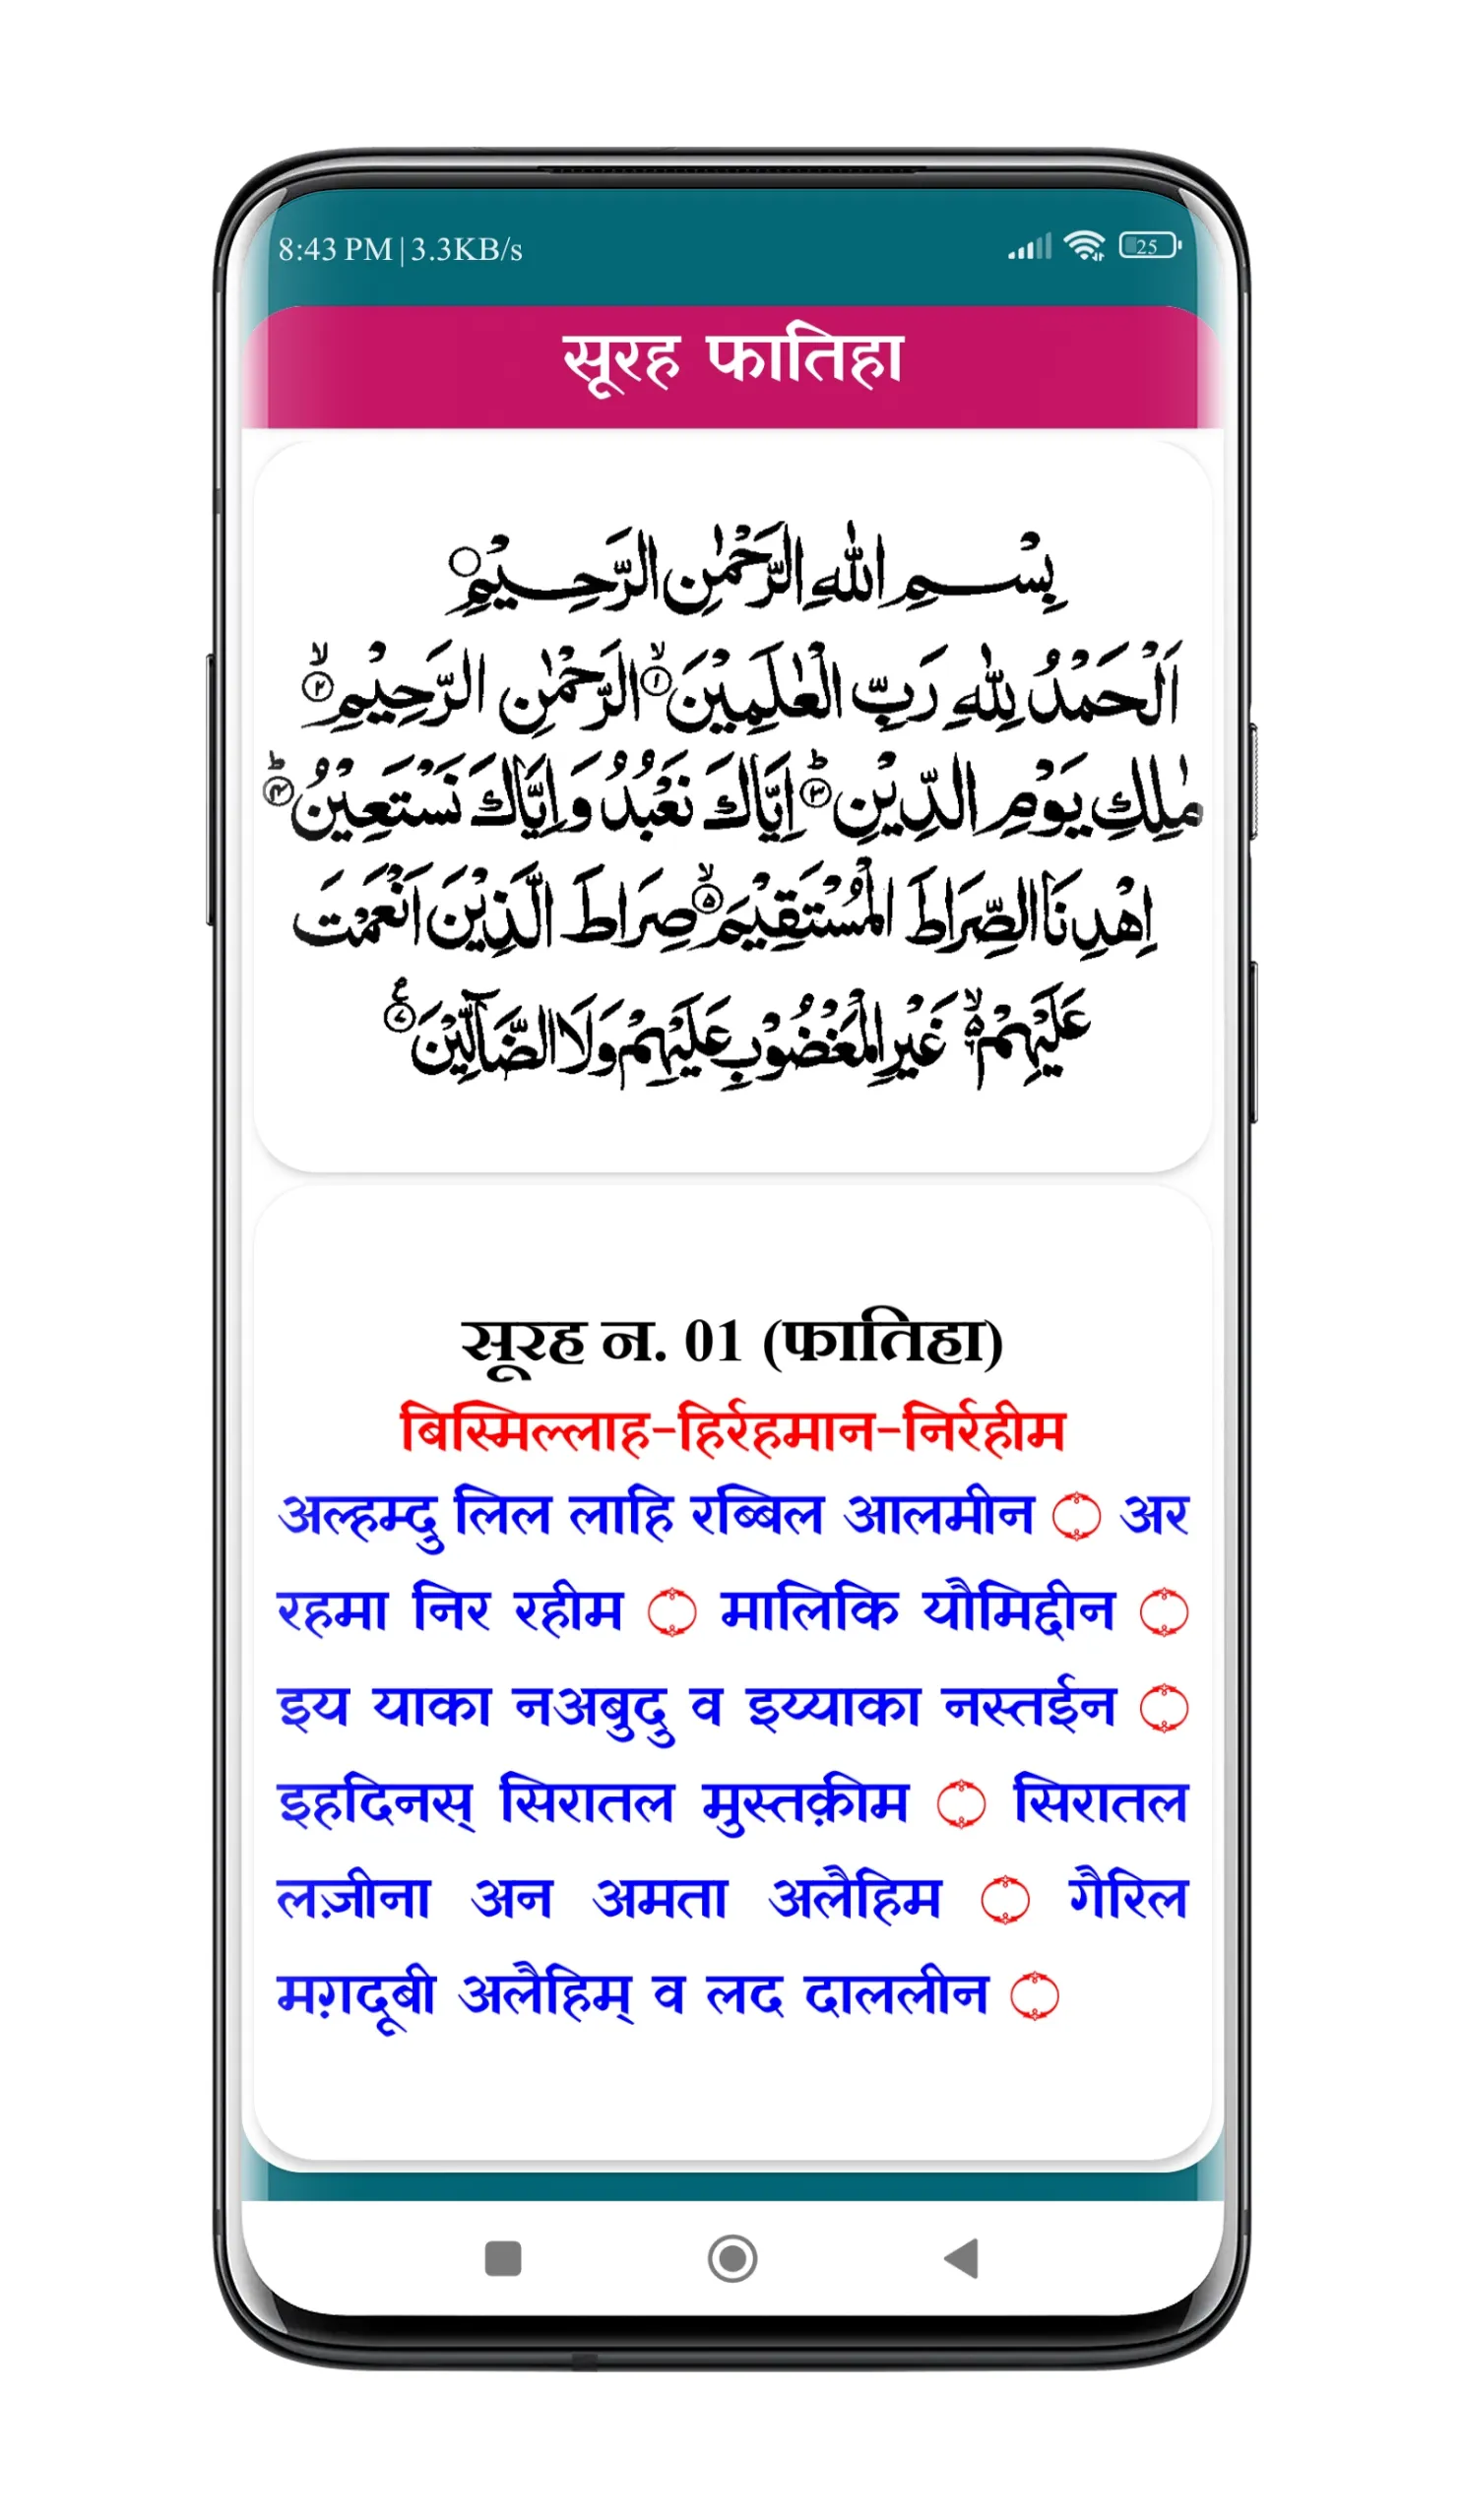 8:43 PM | 3.3KB/s 25
सूरह फातिहा
بِسْمِ اللّٰهِ الرَّحْمٰنِ الرَّحِيْمِ○
اَلْحَمْدُ لِلّٰهِ رَبِّ الْعٰلَمِيْنَ ۙ﴿۱﴾ الرَّحْمٰنِ الرَّحِيْمِ ۙ﴿۲﴾
مٰلِكِ يَوْمِ الدِّيْنِ ؕ﴿۳﴾ اِيَّاكَ نَعْبُدُ وَاِيَّاكَ نَسْتَعِيْنُ ؕ﴿۴﴾
اِهْدِنَا الصِّرَاطَ الْمُسْتَقِيْمَ ۙ﴿۵﴾ صِرَاطَ الَّذِيْنَ اَنْعَمْتَ
عَلَيْهِمْ ۙ۬ غَيْرِ الْمَغْضُوْبِ عَلَيْهِمْ وَلَا الضَّآلِّيْنَ ﴿۷﴾
सूरह न. 01 (फातिहा)
बिस्मिल्लाह-हिर्रहमान-निर्रहीम
अल्हम्दु लिल लाहि रब्बिल आलमीन ۝ अर
रहमा निर रहीम ۝ मालिकि यौमिद्दीन ۝
इय याका नअबुदु व इय्याका नस्तईन ۝
इहदिनस् सिरातल मुस्तक़ीम ۝ सिरातल
लज़ीना अन अमता अलैहिम ۝ गैरिल
मग़दूबी अलैहिम् व लद दाललीन ۝